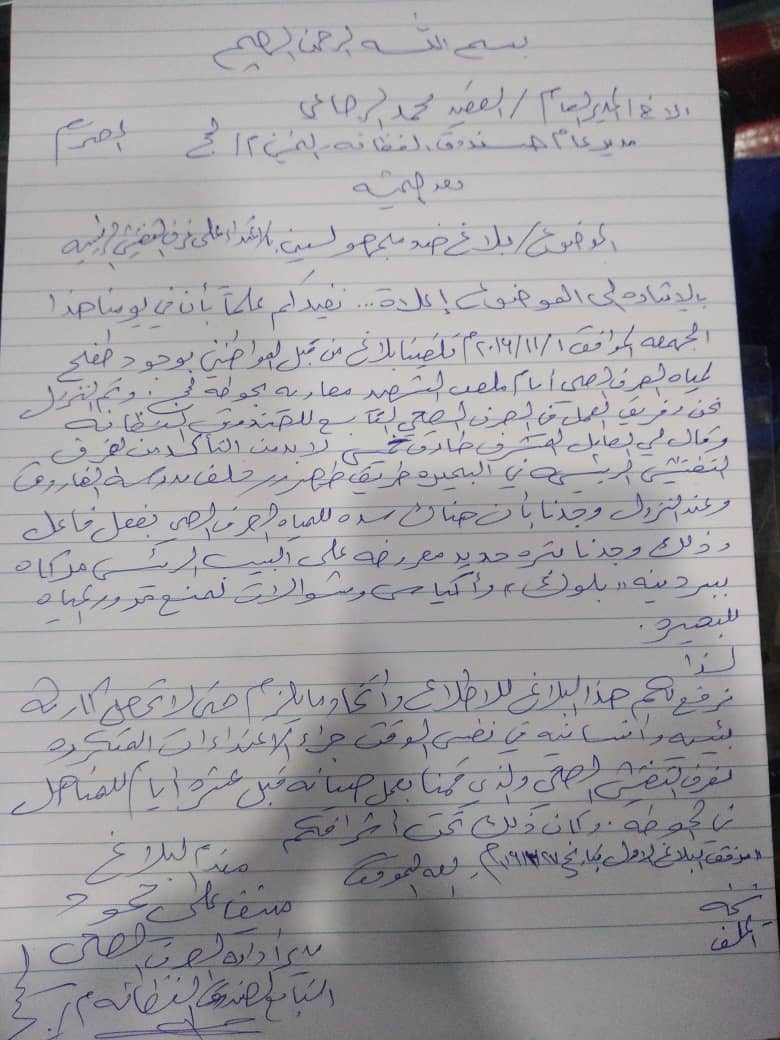 بسم الله الرحمن الرحيم
الاخ المدير العام / العقيد محمد الرضاعي
مدير عام صندوق النظافة والتحسين م/ لحج المحترم
بعد التحية
الموضوع / بلاغ ضد مجهولين بالاعتداء على غرف التفتيش الرئيسية
بالاشاره الى الموضوع إعلاه... نفيدكم علماً بأن في يومنا هذا
الجمعه الموافق ١/١١/٢٠١٩م تلقينا بلاغ من قبل المواطنين بوجود طفح
لمياه الصرف الصحي أمام ملعب الشهيد معاوية بحوطة لحج. وتم النزول
نحن وفريق العمل في الصرف الصحي التابع للصندوق النظافة
وقال لي العامل المشرف طارق لابد من التأكد من غرف
التفتيش الرئيسية في البحيره طريق خلف مدرسة الفاروق
وعند النزول وجدنا بأن هناك سده للمياه الصرف الصحي بفعل فاعل
وذلك وجدنا حديد معروضه على البيب الرئيسي
ببردينه "بلوك" وأكياس وشوالات تمنع مرور المياه
للبحيره.
لذا
نرفع لكم هذا البلاغ للاطلاع وأتخاذ ما يلزم حتى لا تحصل كارثة
بيئيه وانسانيه في نفس الوقت جراء الاعتداءات المتكرره
لغرف التفتيش الصحي والذي قمنا بعمل صيانه قبل عشره أيام للمناهل
في الحوطه. وكان ذلك تحت أشرافكم
"مرفق البلاغ الاول بتاريخ
مقدم البلاغ
محمود
نسخة
للملف
مدير أدارة الصرف الصحي
التابع لصندوق النظافة م/ لحج